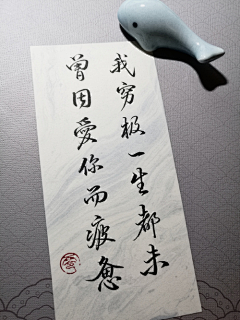 我穷极一生都未
曾因爱你而疲惫